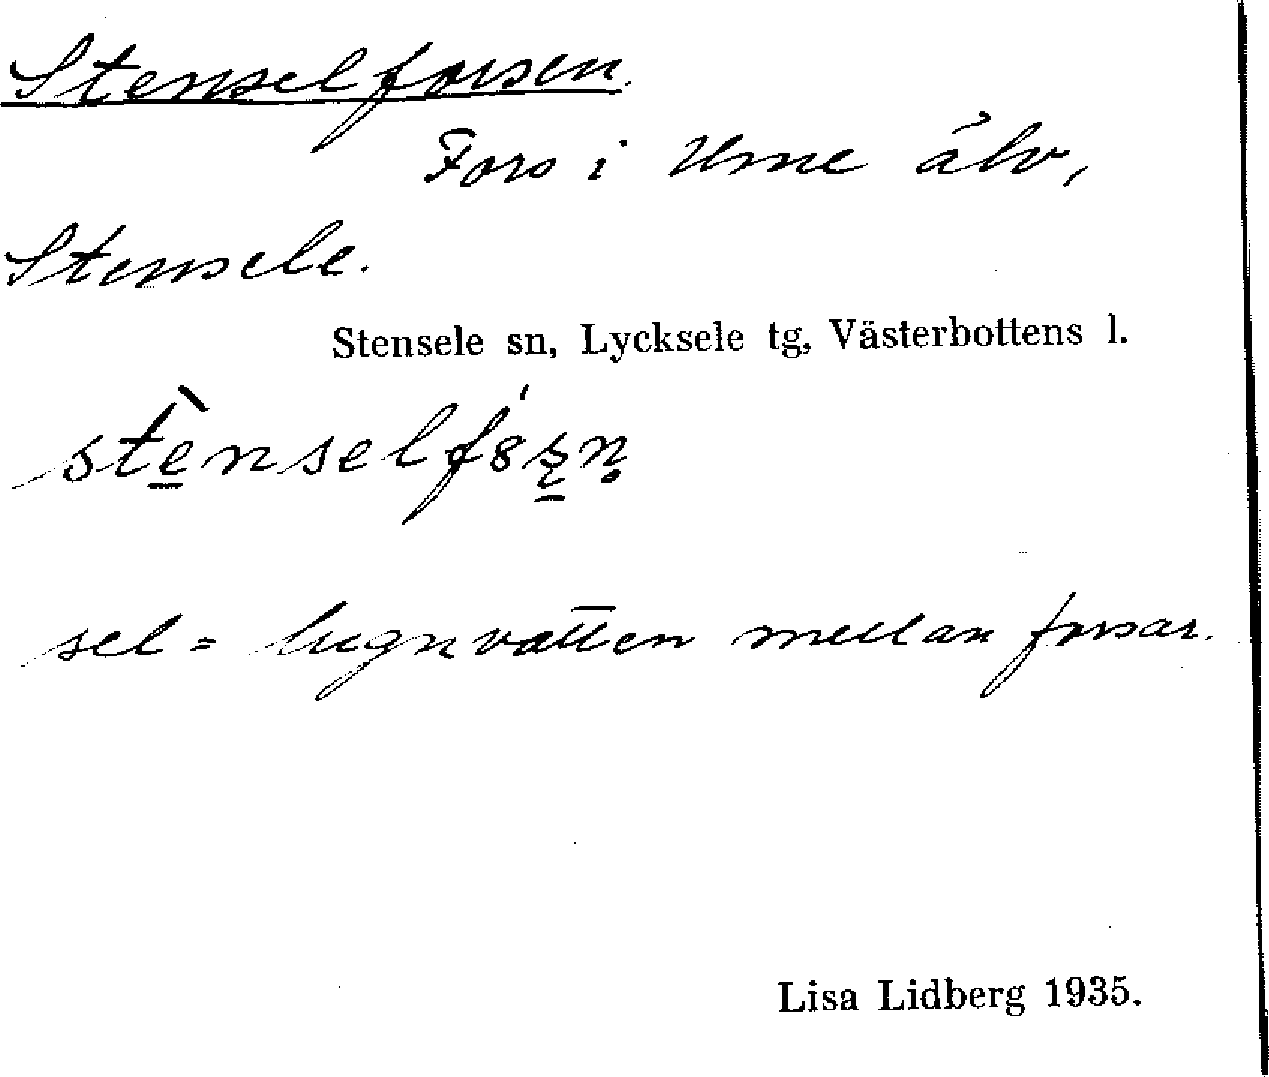 Stenselforsen.
Fors i Ume älv,
Stensele.
Stensele sn, Lycksele tg, Västerbottens l.
sel = lugnvatten mellan forsar.
Lisa Lidberg 1935.